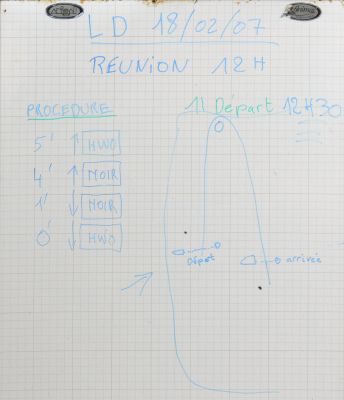 LD 18/02/07
RÉUNION 12H
PROCEDURE
1) Départ 12H30
5' ↑ HWO
4' ↑ NOIR
1' ↓ NOIR
0' ↓ HWO
Départ
arrivée